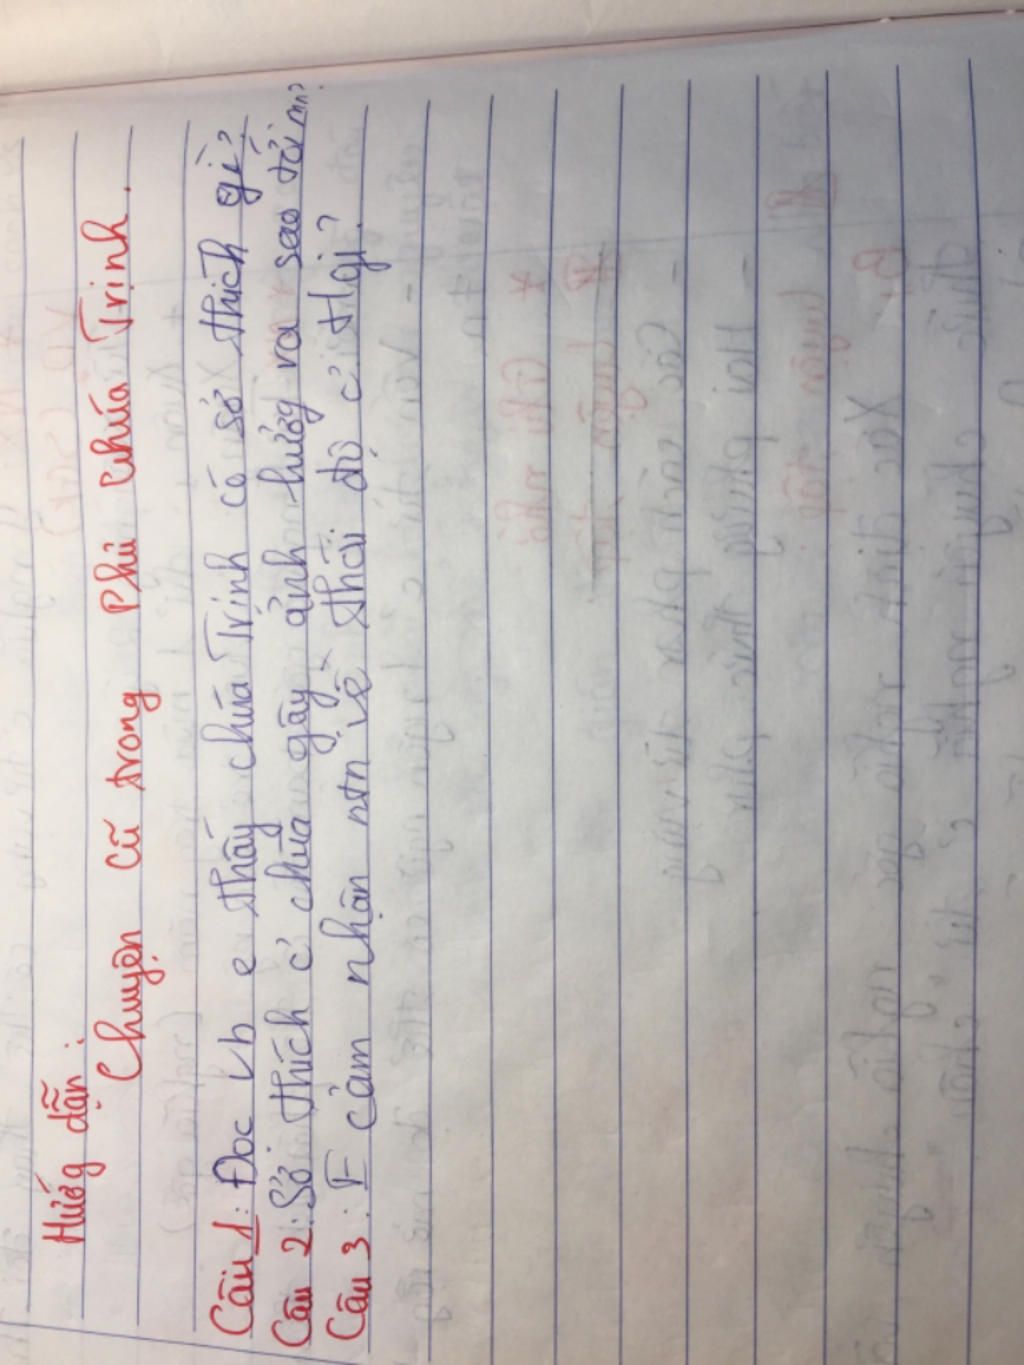 Hướg dẫn:
Chuyện cũ trong Phủ chúa Trịnh.
Câu 1: Đọc vb e thấy chúa Trịnh có sở thích gì?
Câu 2: Sở thích c' chúa gây ảnh hưởg ra sao tới
Câu 3: E cảm nhận ntn về thời đó c' Hgi?